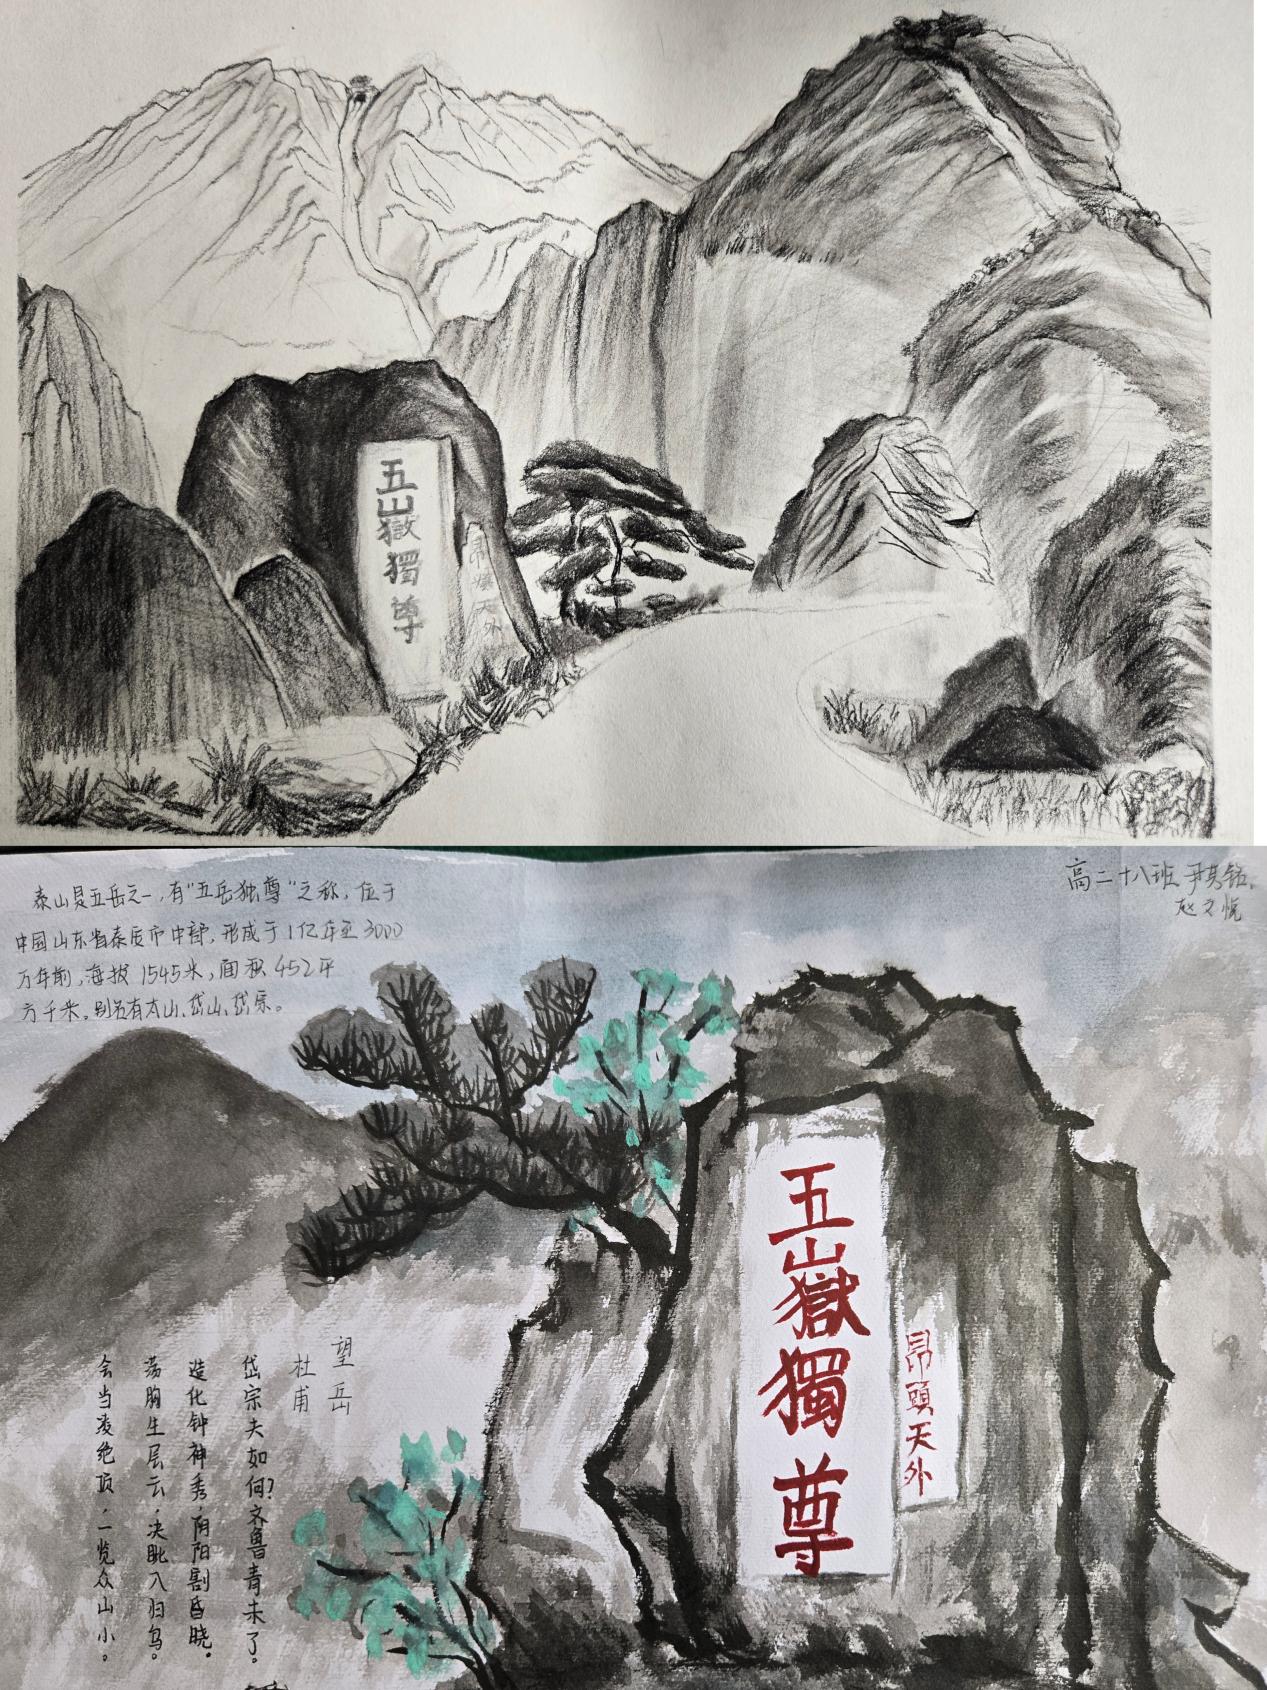 五嶽獨尊
昂頭天外
泰山是五岳之一，有“五岳独尊”之称，位于
中国山东省泰安市中部，形成于1亿年至3000
万年前，海拔1545米，面积452平
方千米。别名有太山、岱山、岱宗。
高二十八班
五嶽獨尊
昂頭天外
望岳
杜甫
岱宗夫如何？齐鲁青未了。
造化钟神秀，阴阳割昏晓。
荡胸生层云，决眦入归鸟。
会当凌绝顶，一览众山小。